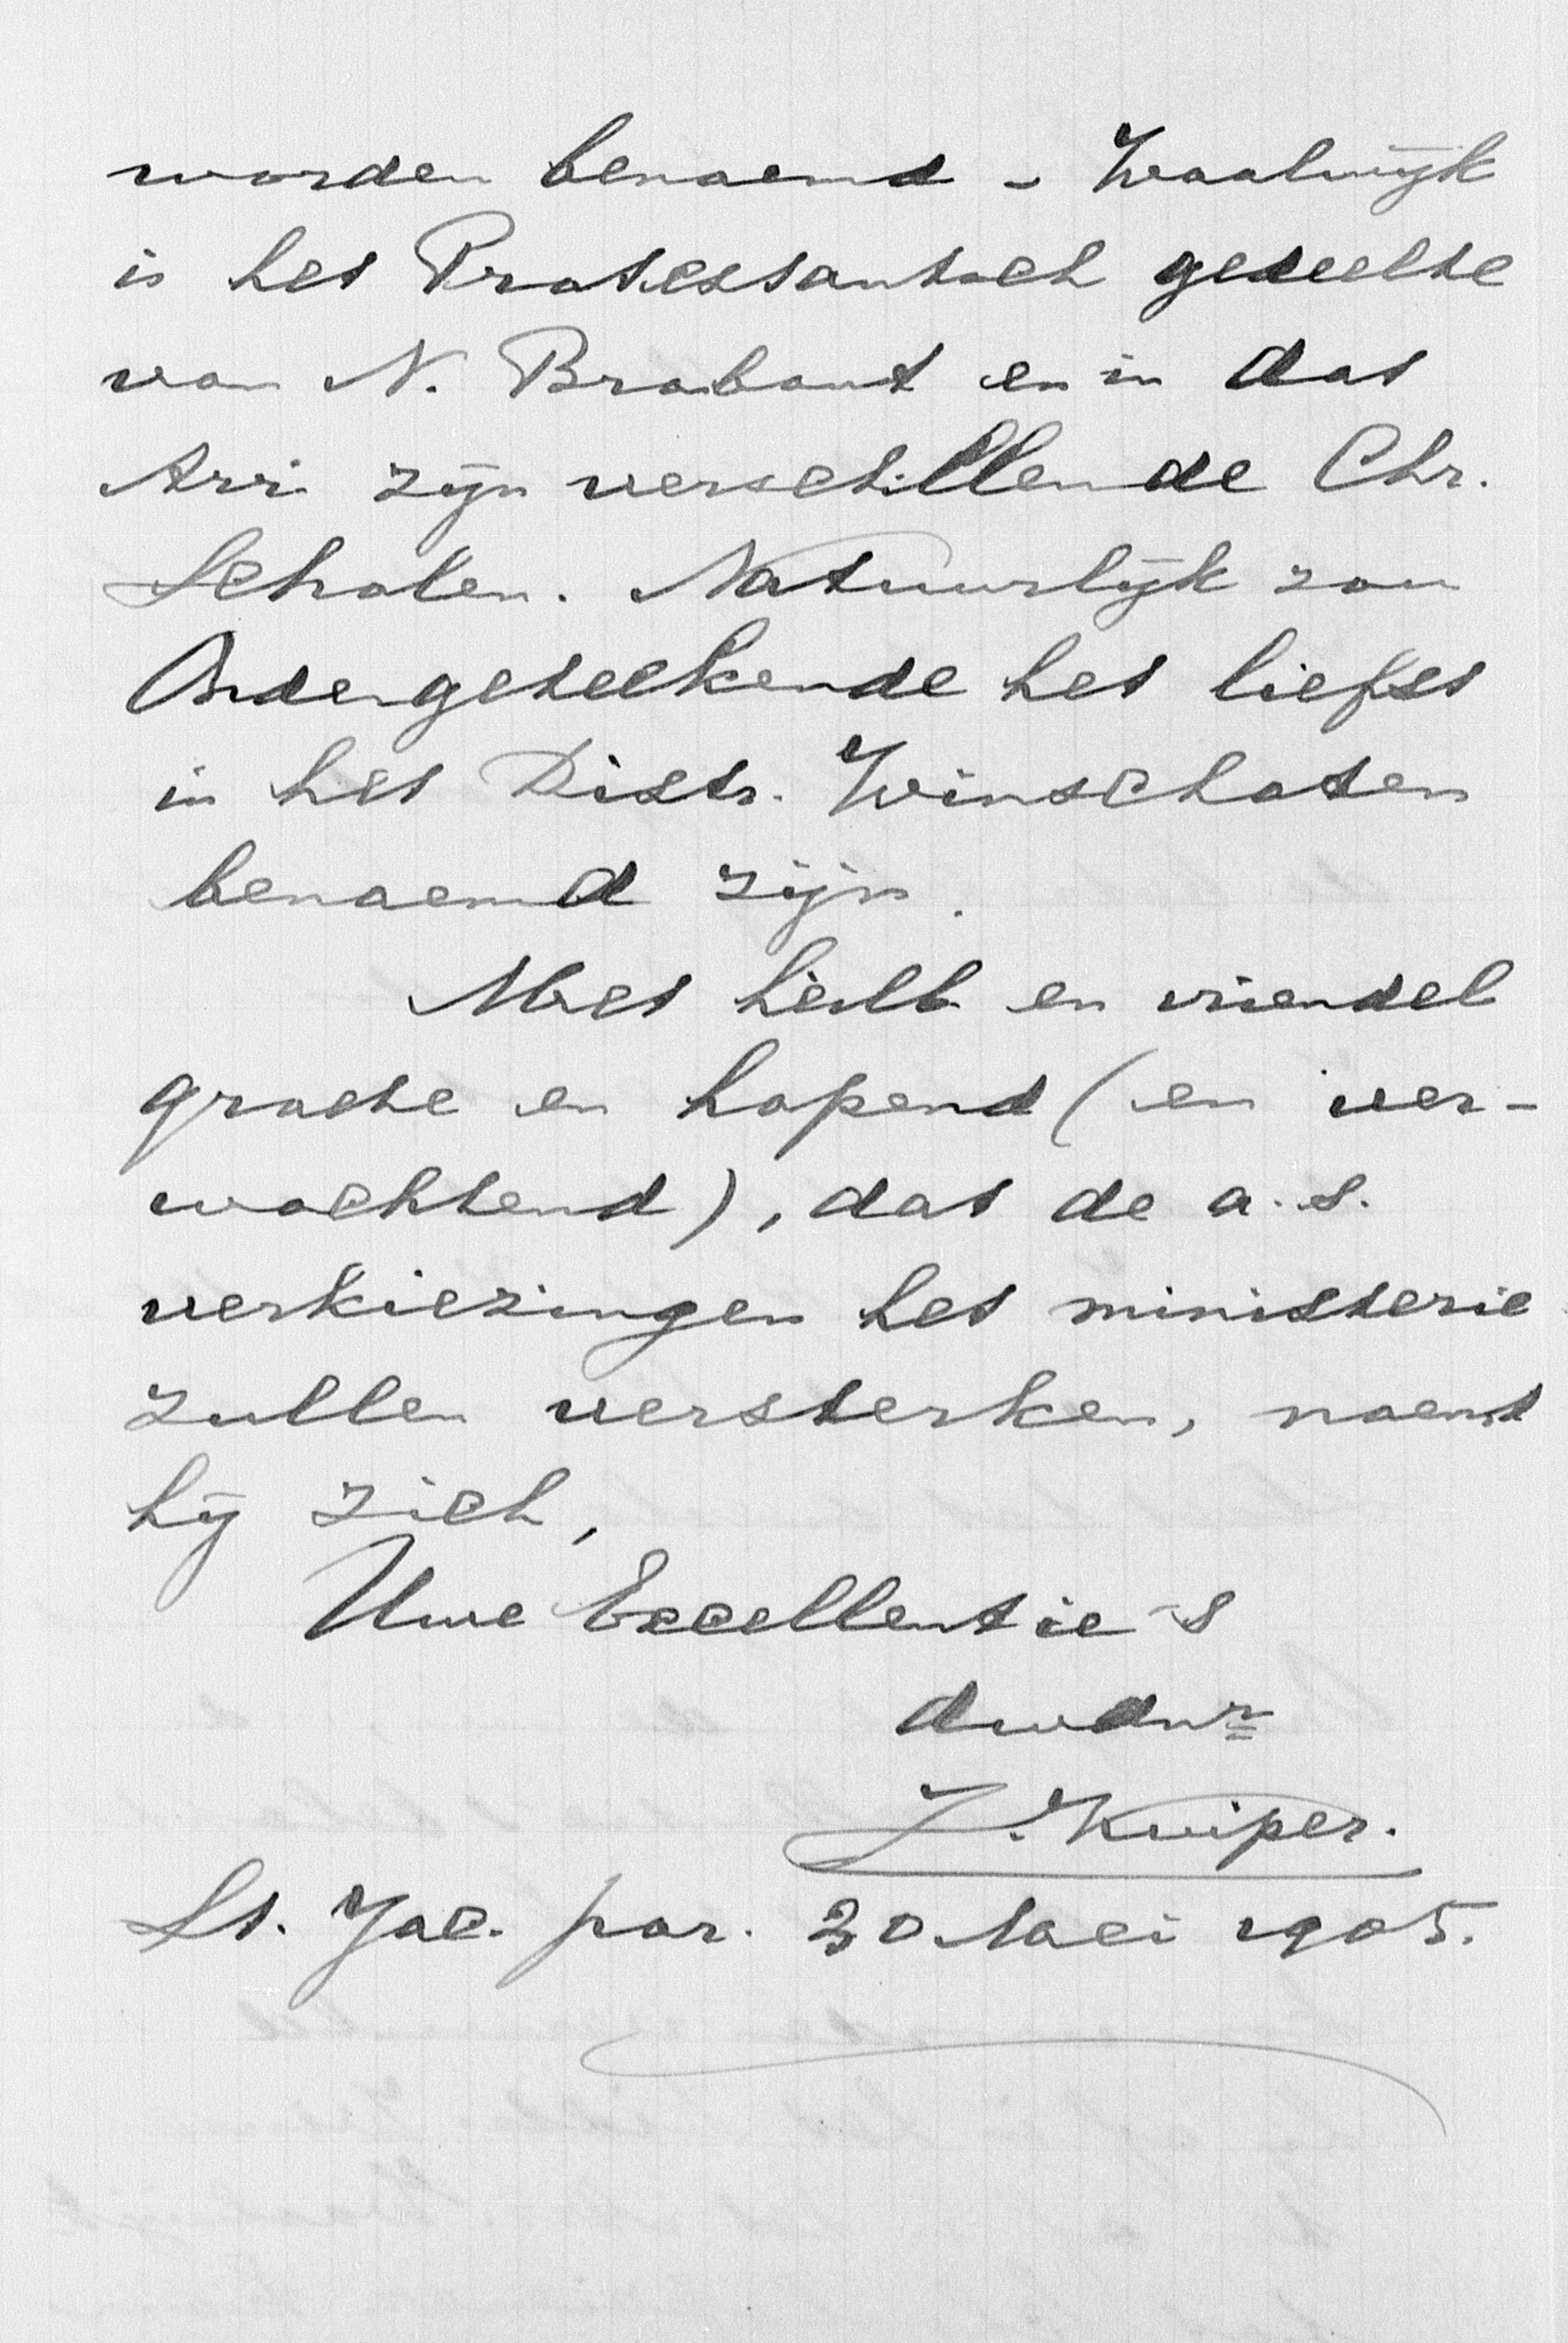 worden benoemd – Waalwijk
is het Protestantsch gedeelte
van N. Brabant en in dat
Arr. zijn verschillende Chr.
Scholen. Natuurlijk zou
Ondergeteekende het liefst
in het Distr. Winschoten
benoemd zijn.
Met heilb. en vriendel
groete en hopend (en ver-
wachtend), dat de a.s.
verkiezingen het ministerie
zullen versterken, noemt
hij zich,
Uwe Excellentie's
dwdnr
J. Kuiper.
St. Jac. par. 30 Mei 1905.